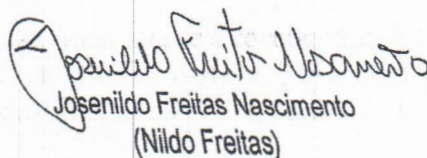 Josenildo Freitas Nascimento
Josenildo Freitas Nascimento
(Nildo Freitas)